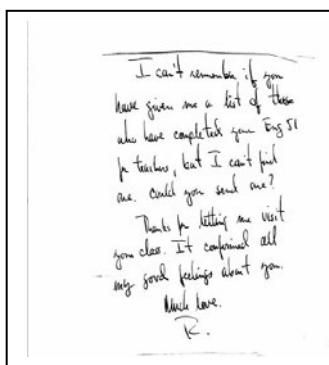 I can't remember if you
have given me a list of those
who have completed your Eng 51
for teachers, but I can't find
one. Could you send one?
Thanks for letting me visit
your class. It confirmed all
my good feelings about you.
Much love.
R.